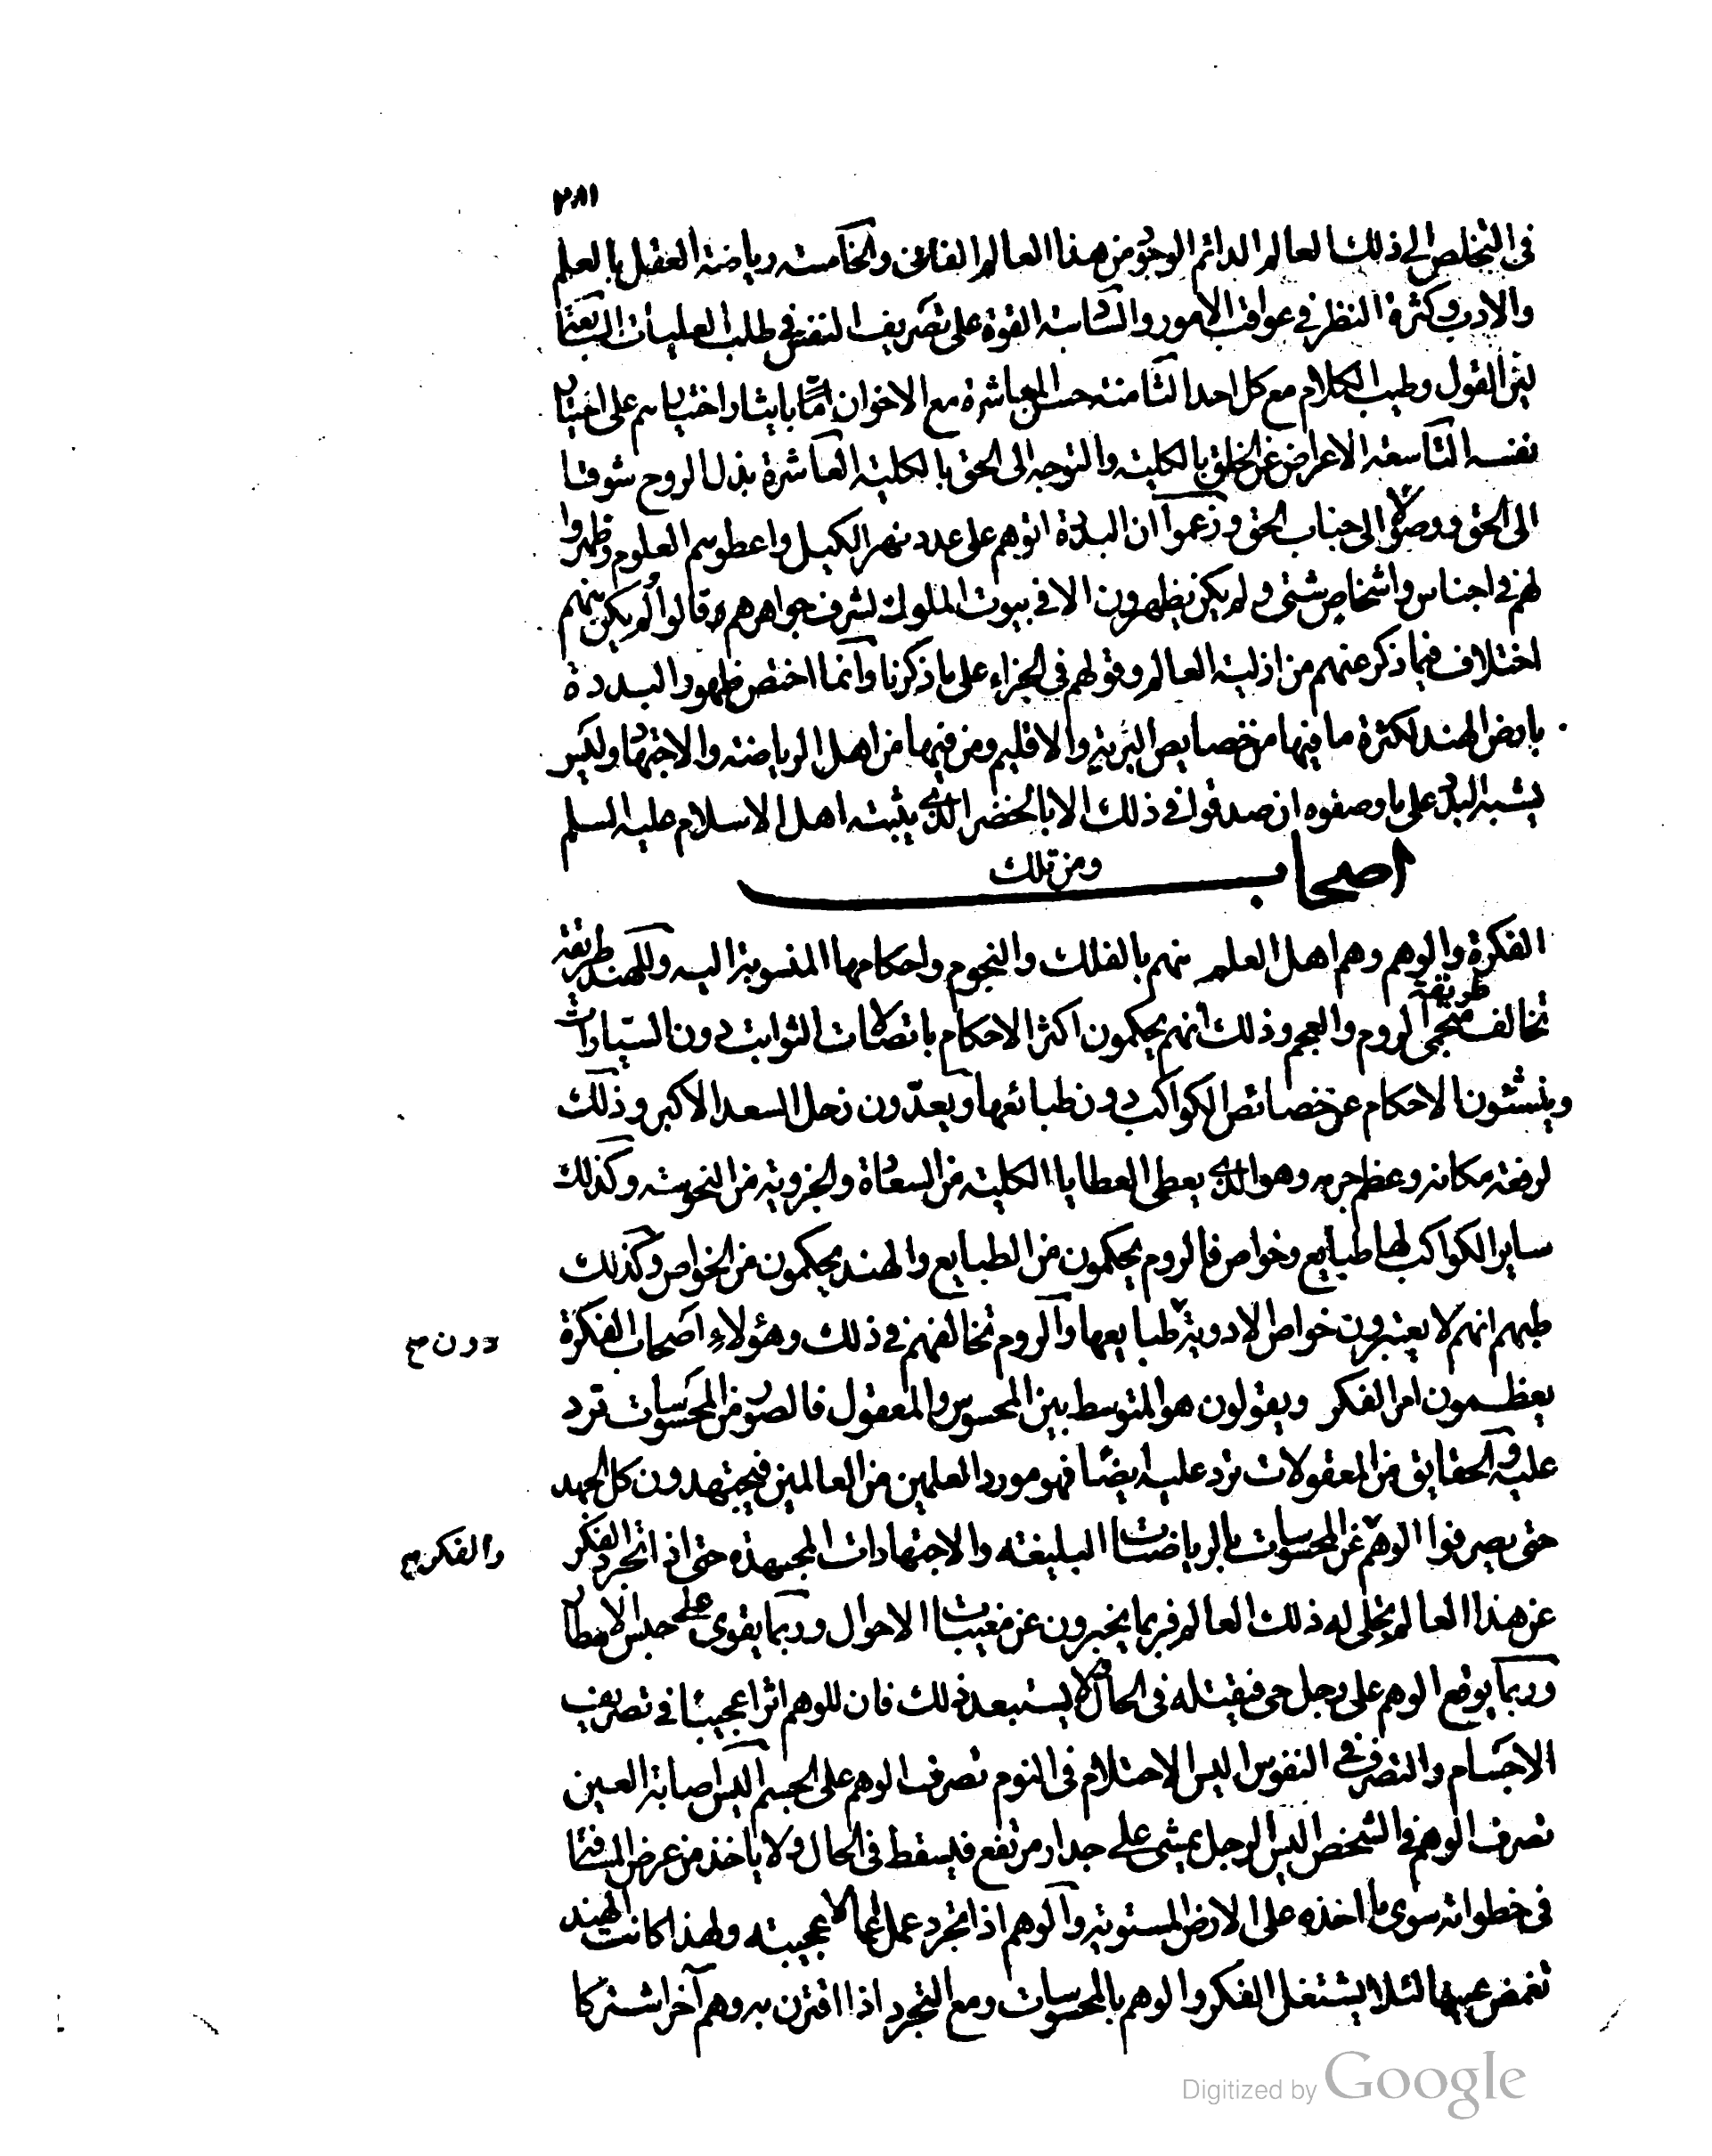 ٢٨١
فى التخلص الى ذلك العالم الدائم الوجود من هذا العالم الفانى والخامسة رياضة العقل بالعلم
والادب وكثرة النظر فى عواقب الامور والسادسة القوة على تصريف النفس فى طلب العليات السابعة
لين القول وطيب الكلام مع كل احد الثامنة حسن المعاشرة مع الاخوان بايثار اختيارهم على اختيار
نفسه التاسعة الاعراض عن الخلق بالكلية والتوجه الى الحق بالكلية العاشرة بذل الروح شوقا
الى الحق ووصولا الى جناب الحق وزعموا ان البددة اتوهم على عدد نهر الكيل واعطوهم العلوم وظهروا
لهم فى اجناس واشخاص شتى ولم يكن يظهرون الا فى بيوت الملوك لشرف جواهرهم وقالوا لم يكن بينهم
اختلاف فيما ذكر عنهم من ازلية العالم وقولهم فى الجزاء على ما ذكرنا وانما اختص ظهور البددة
بارض الهند لكثرة ما فيها من خصايص البرية والاقليم ومن فيها من اهل الرياضة والاجتهاد وليس
يشبه البد على ما وصفوه ان صدقوا فى ذلك الا بالخضر الذى يثبته اهل الاسلام عليه السلم
ومن تلك اصحاب
الفكرة والوهم وهم اهل العلم منهم بالفلك والنجوم واحكامها المنسوبة اليه وللهند طريقة
تخالف طريقة منجمى الروم والعجم وذلك انهم يحكمون اكثر الاحكام باتصالات الثوابت دون السيارات
وينشئون الاحكام عن خصائص الكواكب دون طبائعها ويعدّون زحل السعد الاكبر وذلك
لرفعة مكانه وعظم جرمه وهو الذى يعطى العطايا الكلية من السعادة والجزوية من النحوسة وكذلك
ساير الكواكب لها طبايع وخواص فالروم يحكمون من الطبايع والهند يحكمون من الخواص وكذلك
طبهم انهم لا يعتبرون خواص الادوية طبايعها والروم تخالفهم فى ذلك وهؤلاء اصحاب الفكرة
دون صح
يعظمون امر الفكر ويقولون هو المتوسط بين المحسوس والمعقول فالصور من المحسوسات ترد
عليه والحقايق من المعقولات ترد عليه ايضا فهو مورد العلمين من العالمين فيجتهدون كل الجهد
حتى يصرفوا الوهم عن المحسوسات بالرياضات البليغة والاجتهادات المجهدة حتى اذا تجرد الفكر
والفكر صح
عن هذا العالم تجلى له ذلك العالم فربما يخبرون عن مغيبات الاحوال وربما يقوى على حبس الامطار
وربما يوقع الوهم على رجل حى فيقتله فى الحال ولا يستبعد ذلك فان للوهم اثرا عجيبا فى تصريف
الاجسام والتصرف فى النفوس اليس الاحتلام فى النوم تصرف الوهم على الجسم اليس اصابة العين
تصرف الوهم فى الشخص اليس الرجل يمشى على جدار مرتفع فيسقط فى الحال ولا ياخذ من عرض المسافة
فى خطواته سوى ما اخذه على الارض المستوية والوهم اذا تجرد عمل اعمالا عجيبة ولهذا كانت الهند
تغمض عينها لئلا يشتغل الفكر والوهم بالمحسوسات ومع التجرد اذا اقترن به وهم آخر اشتركا
Digitized by Google